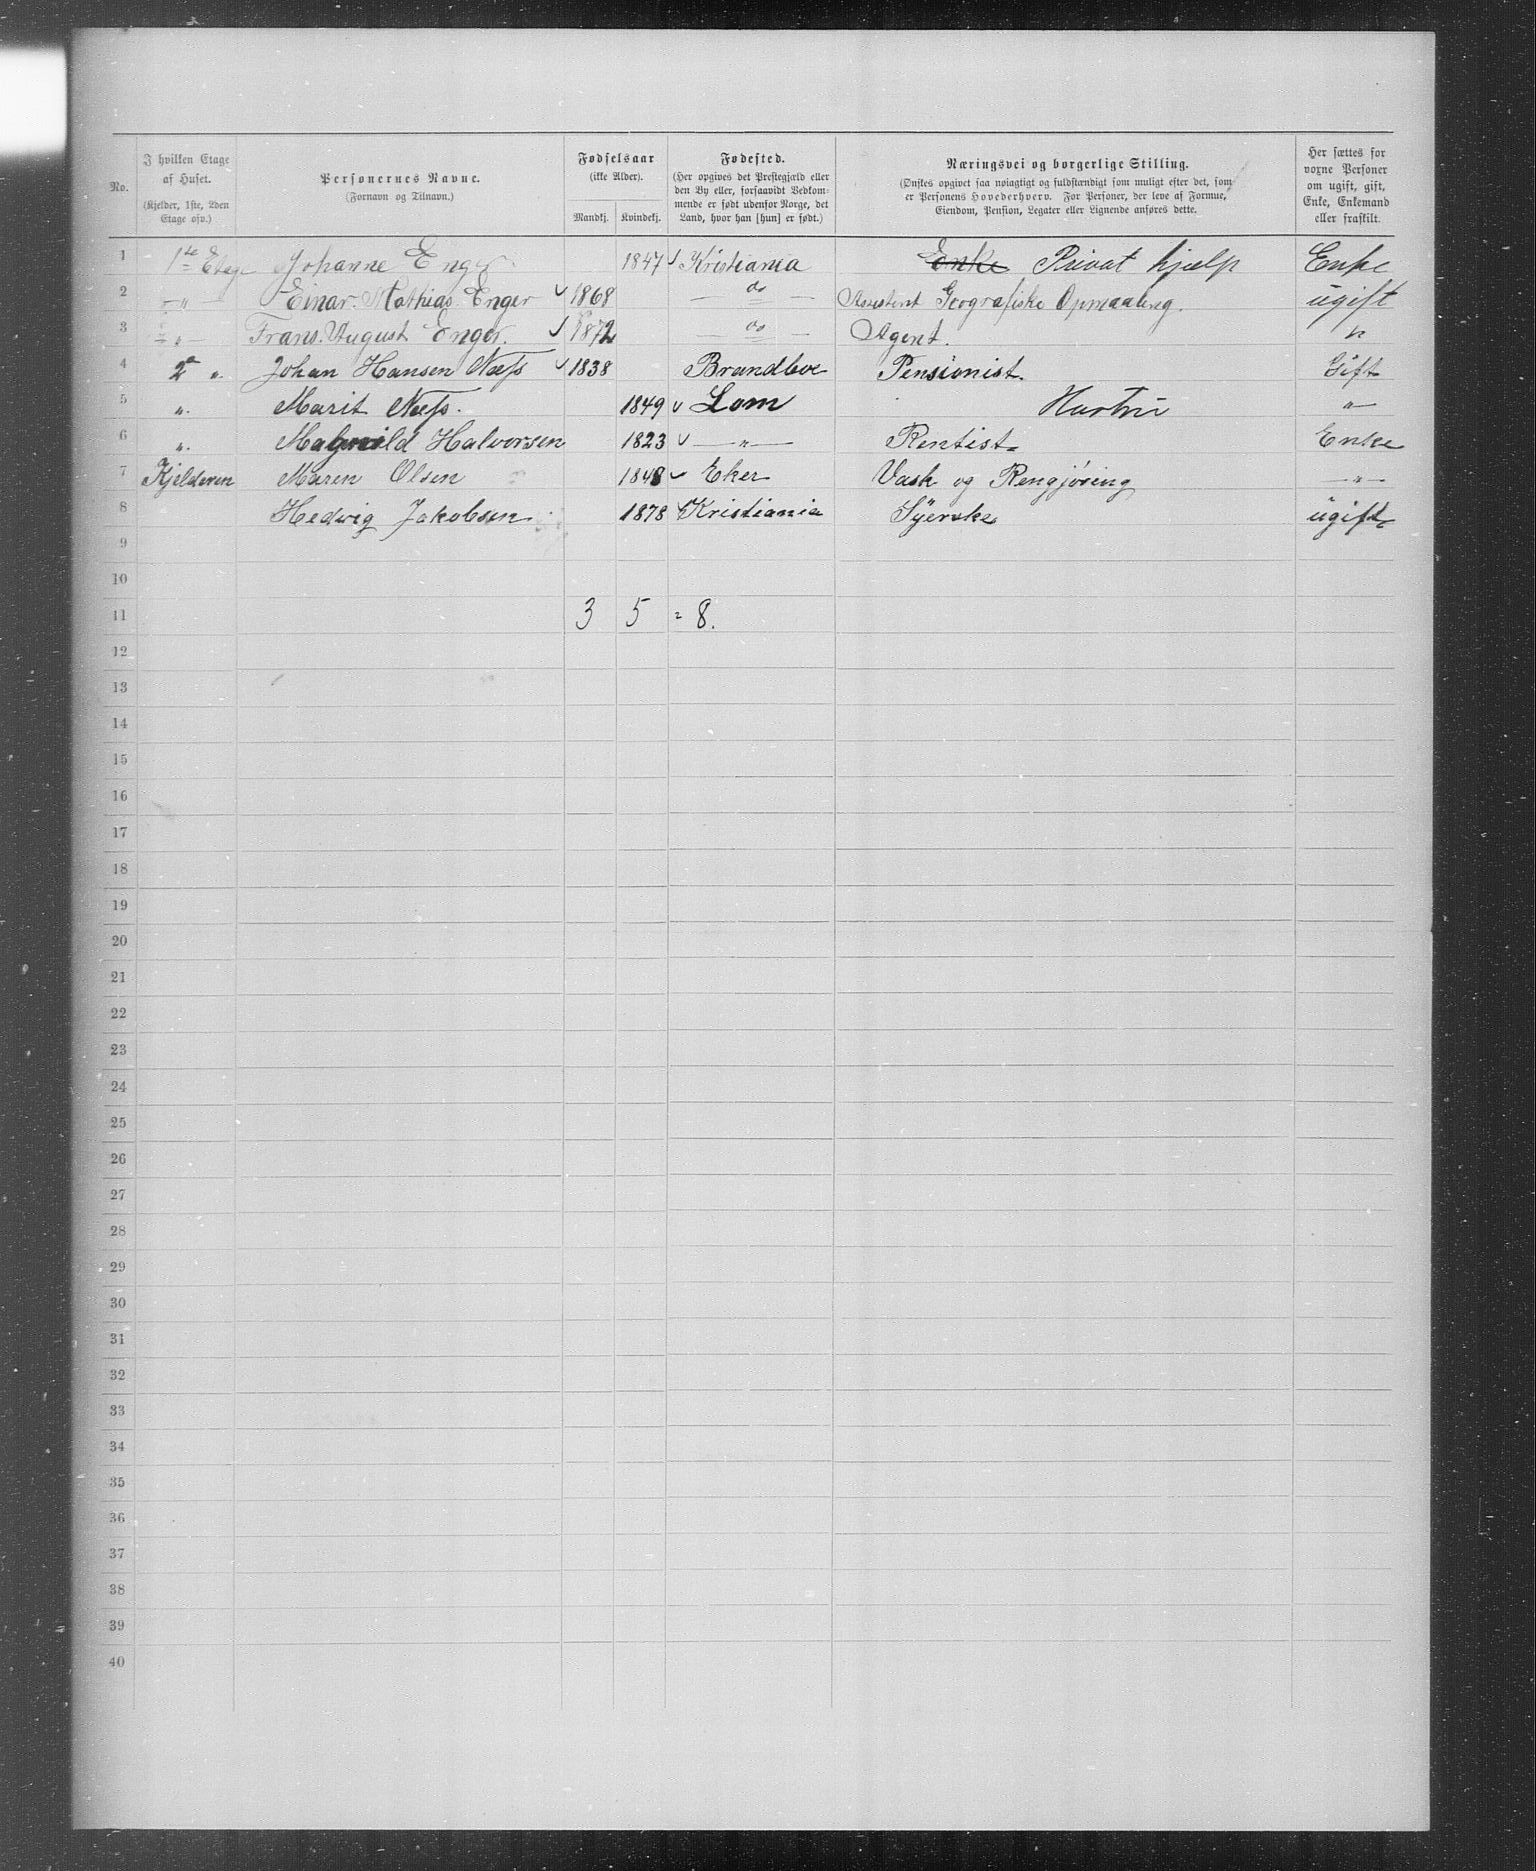 No.
I hvilken Etage af Huset. (Kjelder, 1ste, 2den Etage osv.)
Personernes Navne. (Fornavn og Tilnavn.)
Fødselsaar (ikke Alder).
Mandkj. Kvindekj.
Fødested. (Her opgives det Prestegjæld eller den By eller, forsaavidt Vedkommende er født udenfor Norge, det Land, hvor han [hun] er født.)
Næringsvei og borgerlige Stilling. (Ønskes opgivet saa nøiagtigt og fuldstændigt som muligt efter det, som er Personens Hovederhverv. For Personer, der leve af Formue, Eiendom, Pension, Legater eller Lignende anføres dette.
Her sættes for voxne Personer om ugift, gift, Enke, Enkemand eller fraskilt.
1 1ste Etage Johanne Enger 1847 Kristiania Enke Privat hjælp Enke
2 — " — Einar Mathias Enger 1868 — do — Assistent Geografiske Opmaaling. ugift
3 — " — Frans August Enger. 1872 — do — Agent. "
4 2den ". Johan Hansen Næss 1838 Brandboe Pensionist. Gift
5 ". Marit Næss. 1849 Lom Hustru — " —
6 ". Halvorsen 1823 — " — Rentist Enke
7 Kjelderen Maren Olsen 1848 Eker Vask og Rengjøring — " —
8 Hedvig Jakobsen. 1878 Kristiania Syerske ugift
9
10
11 3 5 = 8.
12
13
14
15
16
17
18
19
20
21
22
23
24
25
26
27
28
29
30
31
32
33
34
35
36
37
38
39
40